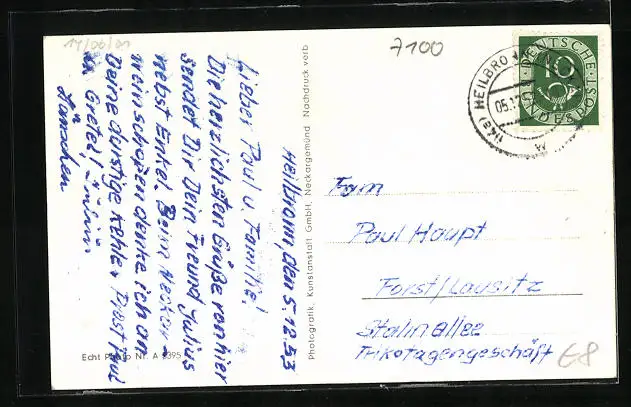 14/00/01
7100
Heilbronn, den 5.12.53
Lieber Paul u. Familie!
Die herzlichsten Grüße von hier
sendet Dir Dein Freund Julius
nebst Enkel. Beim Neckar-
weinschoppen denke ich an
Deine durstige Kehle. Prost Paul
Gretel!
Hänschen
Photografik, Kunstanstalt GmbH, Neckargemünd Nachdruck verb
Echt Photo Nr. A 8395
HEILBRO
05.12
DEUTSCHE
10
BUNDESPOST
Fam
Paul Haupt
Forst/Lausitz
Stalinallee
Trikotagengeschäft
E8